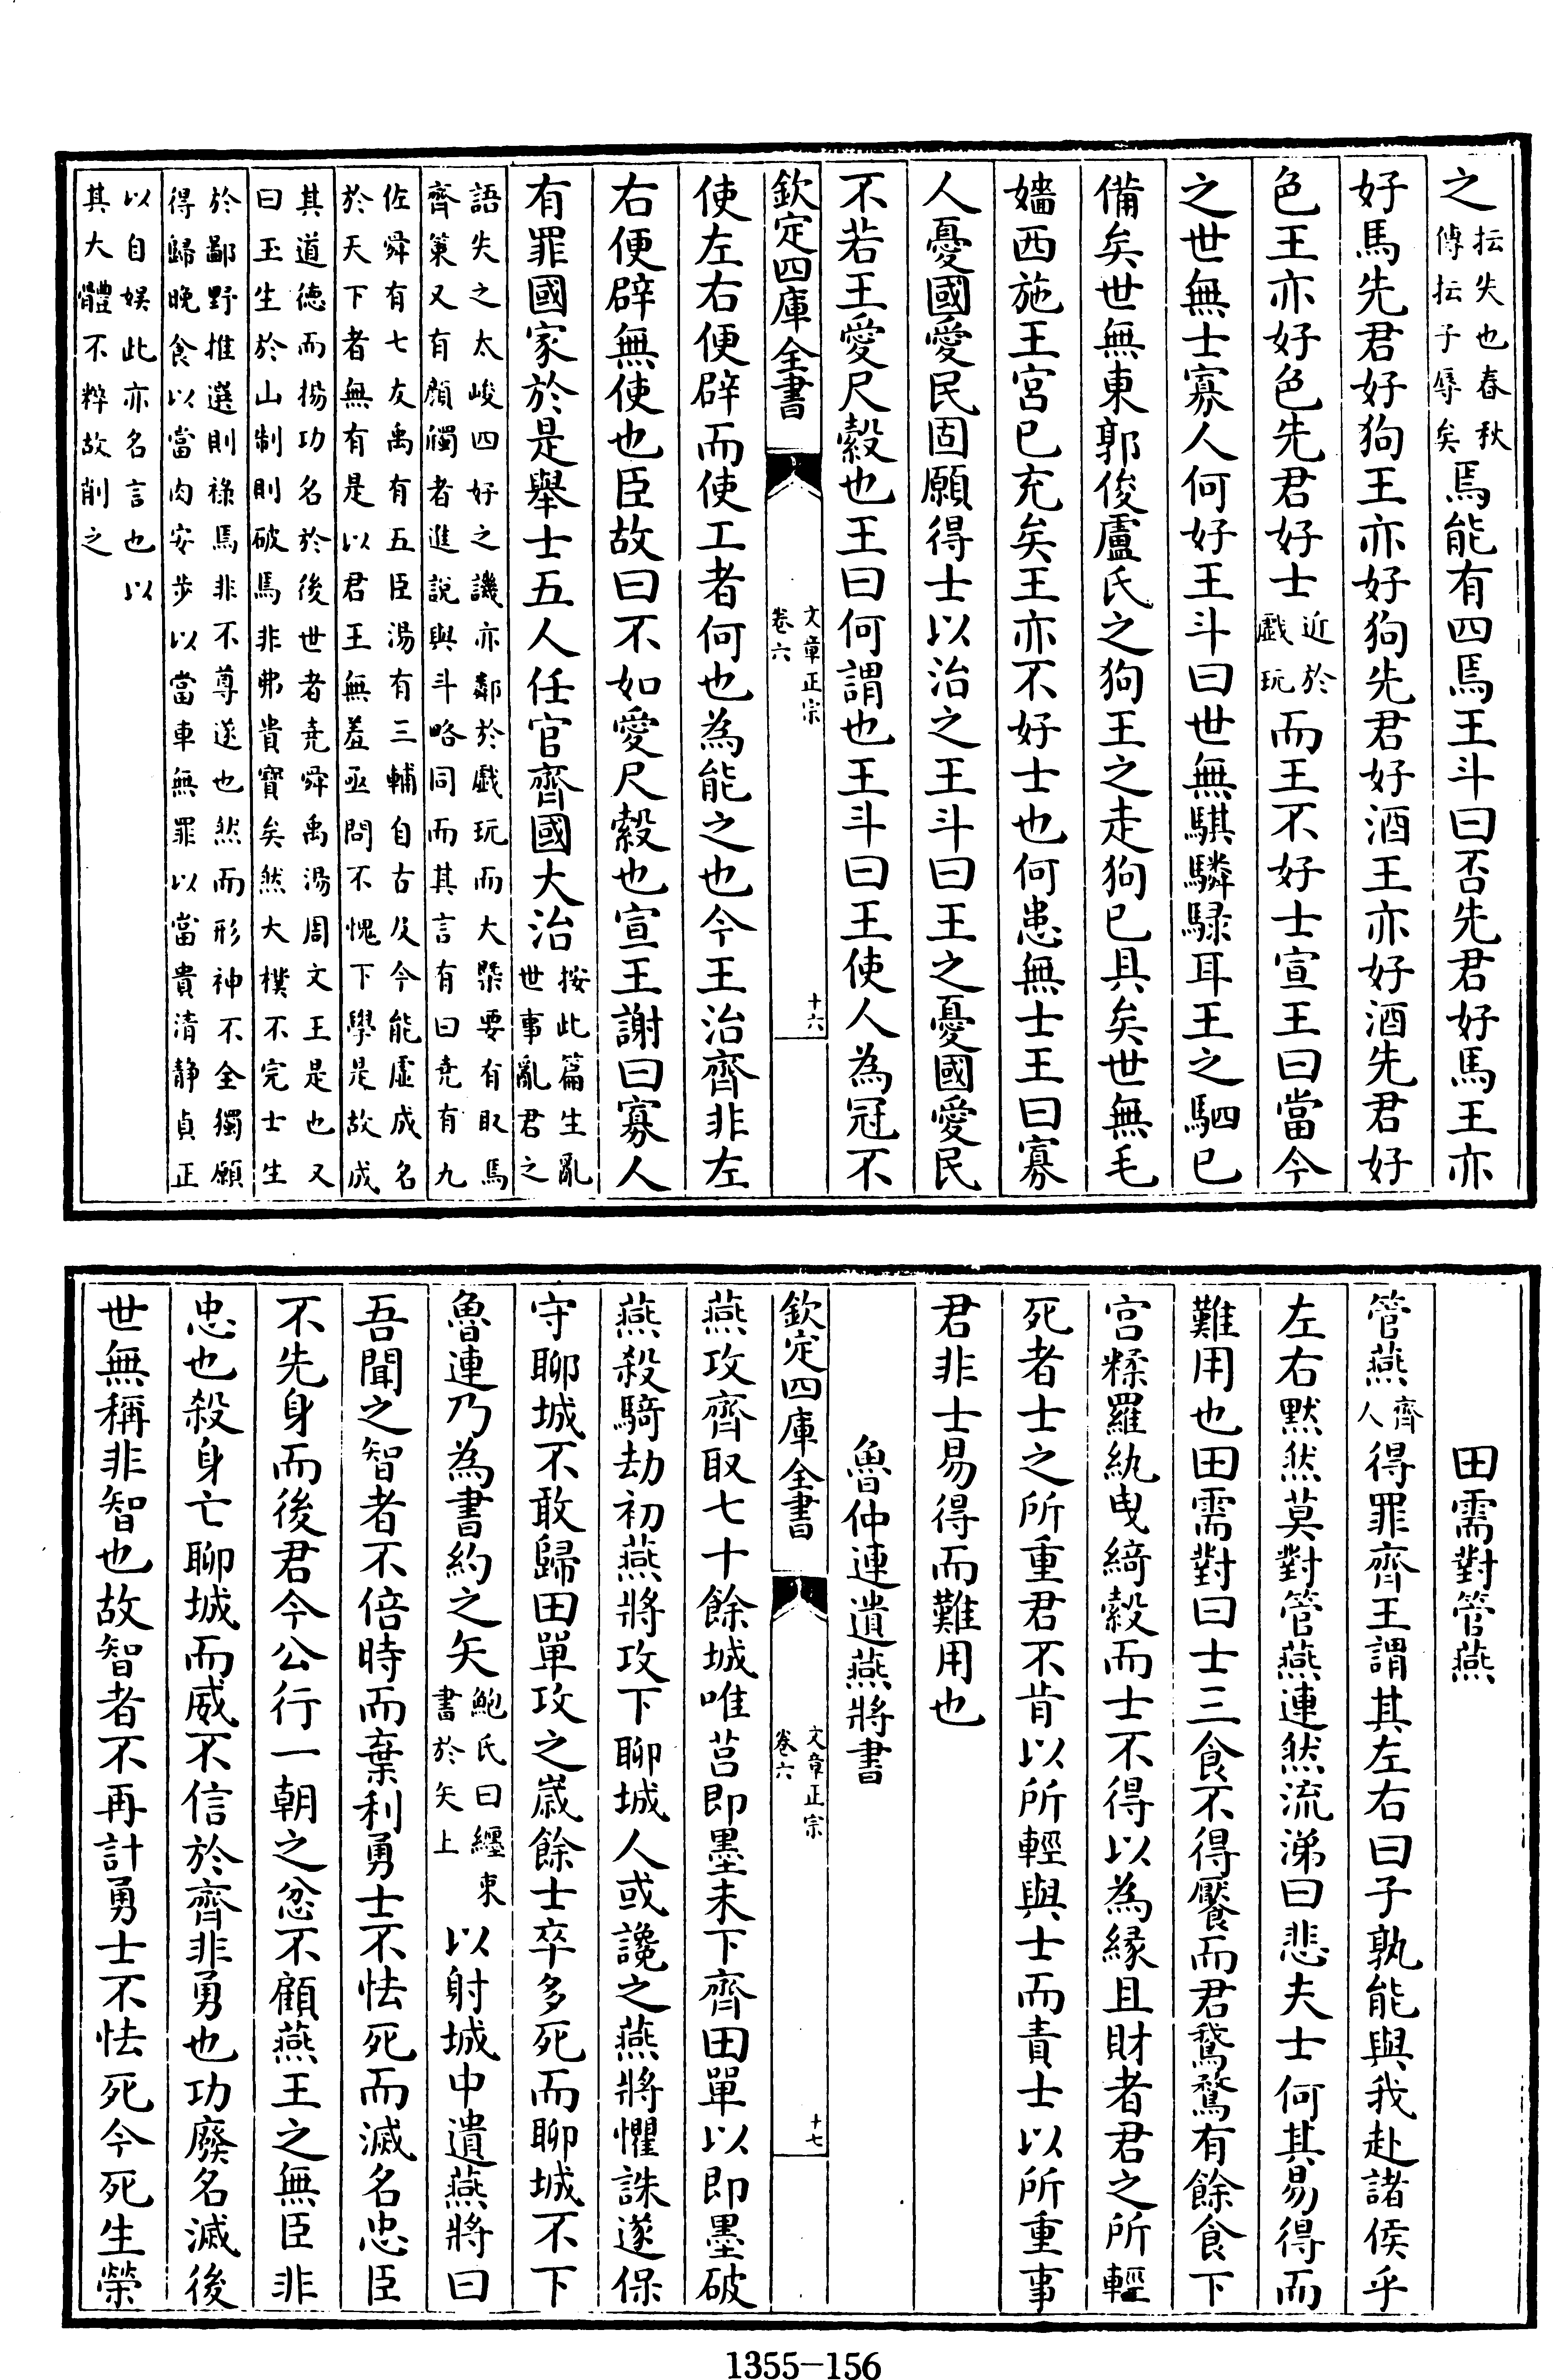 之抎失也春秋傳抎子辱矣焉能有四焉王斗曰否先君好馬王亦
好馬先君好狗王亦好狗先君好酒王亦好酒先君好
色王亦好色先君好士近於戲玩而王不好士宣王曰當今
之世無士寡人何好王斗曰世無騏驎騄耳王之駟已
備矣世無東郭俊盧氏之狗王之走狗已具矣世無毛
嬙西施王宮已充矣王亦不好士也何患無士王曰寡
人憂國愛民固願得士以治之王斗曰王之憂國愛民
不若王愛尺縠也王曰何謂也王斗曰王使人為冠不
欽定四庫全書 文章正宗 卷六 十六
使左右便辟而使工者何也為能之也今王治齊非左
右便辟無使也臣故曰不如愛尺縠也宣王謝曰寡人
有罪國家於是舉士五人任官齊國大治按此篇生亂世事亂君之
語失之太峻四好之譏亦鄰於戲玩而大槩要有取焉
齊策又有顔斶者進說與斗略同而其言有曰堯有九
佐舜有七友禹有五臣湯有三輔自古及今能虛成名
於天下者無有是以君王無羞亟問不愧下學是故成
其道德而揚功名於後世者堯舜禹湯周文王是也又
曰玉生於山制則破焉非弗貴寶矣然大樸不完士生
於鄙野推選則祿焉非不尊遂也然而形神不全獨願
得歸晚食以當肉安步以當車無罪以當貴清静貞正
以自娛此亦名言也以
其大體不粹故削之
田需對管燕
管燕齊人得罪齊王謂其左右曰子孰能與我赴諸侯乎
左右默然莫對管燕連然流涕曰悲夫士何其易得而
難用也田需對曰士三食不得饜而君鵞鶩有餘食下
宮糅羅紈曳綺縠而士不得以為緣且財者君之所輕
死者士之所重君不肯以所輕與士而責士以所重事
君非士易得而難用也
魯仲連遺燕將書
欽定四庫全書 文章正宗 卷六 十七
燕攻齊取七十餘城唯莒即墨未下齊田單以即墨破
燕殺騎劫初燕將攻下聊城人或讒之燕將懼誅遂保
守聊城不敢歸田單攻之歲餘士卒多死而聊城不下
魯連乃為書約之矢鮑氏曰纒束書於矢上以射城中遺燕將曰
吾聞之智者不倍時而棄利勇士不怯死而滅名忠臣
不先身而後君今公行一朝之忿不顧燕王之無臣非
忠也殺身亡聊城而威不信於齊非勇也功廢名滅後
世無稱非智也故智者不再計勇士不怯死今死生榮
1355—156